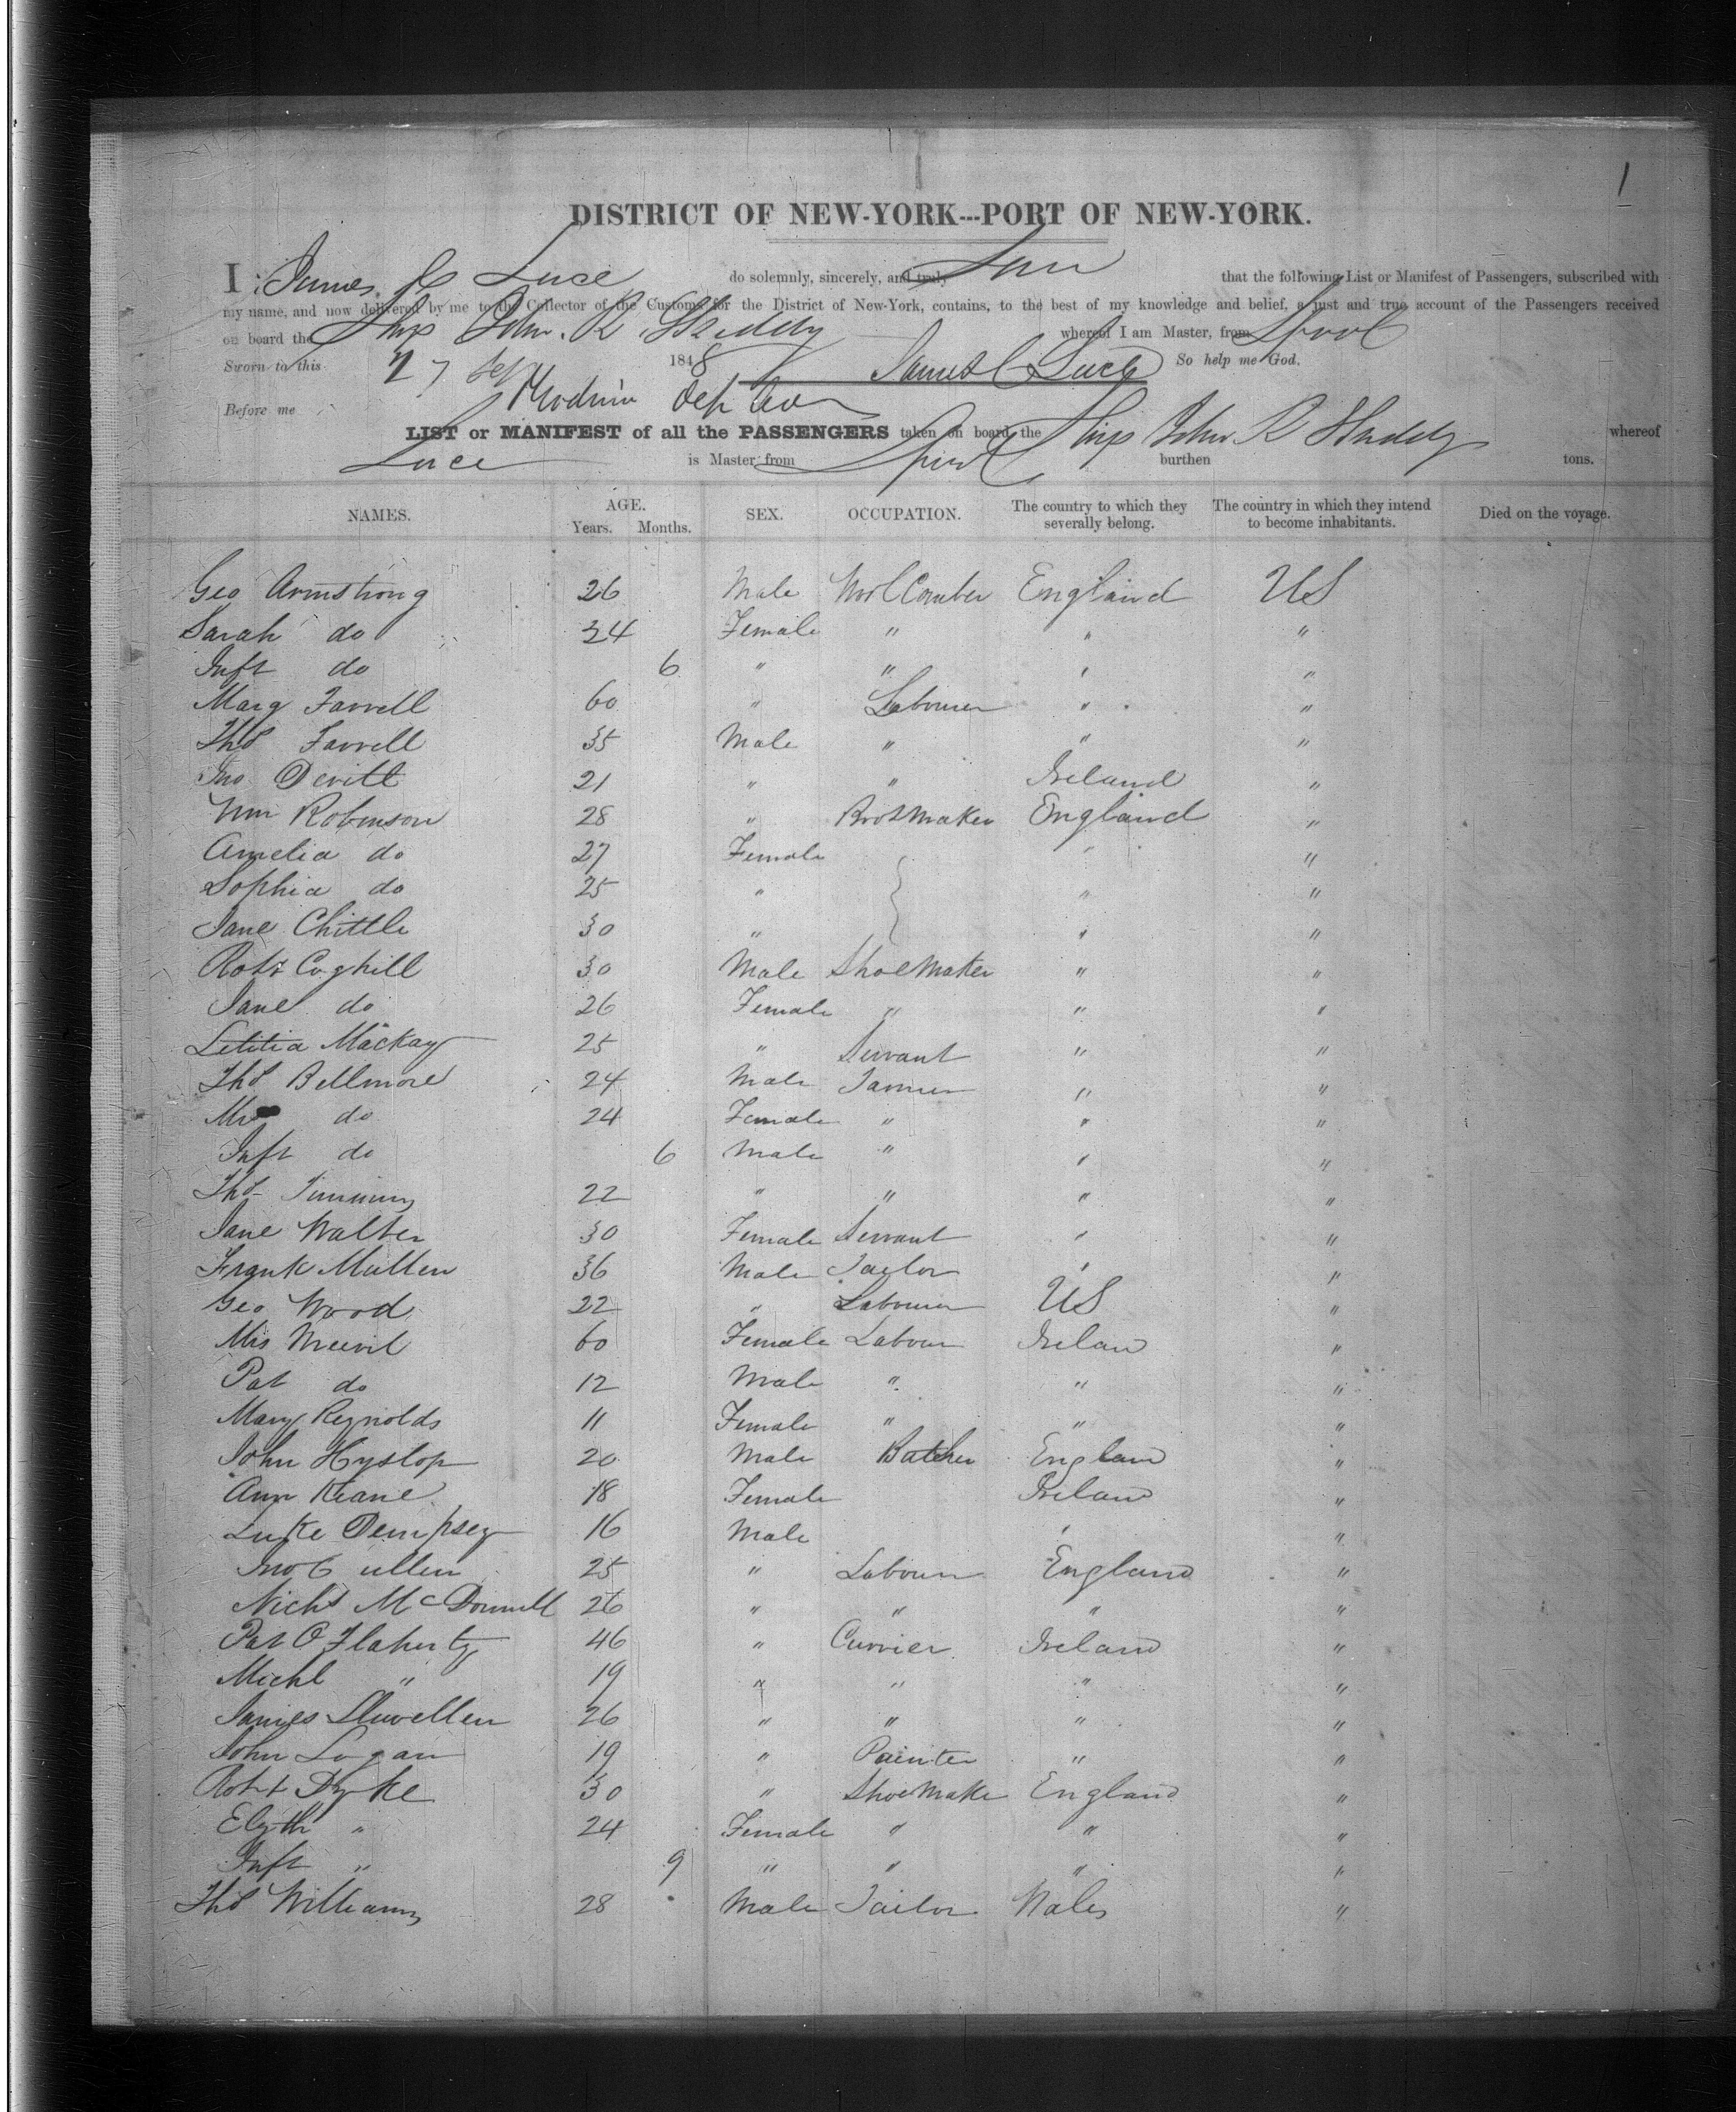 1
DISTRICT OF NEW-YORK---PORT OF NEW-YORK.
I, James C Luce do solemnly, sincerely, and truly that the following List or Manifest of Passengers, subscribed with
my name, and now delivered by me to the Collector of the Customs for the District of New-York, contains, to the best of my knowledge and belief, a just and true account of the Passengers received
on board the Ship John R Skiddy whereof I am Master, from Lpool
Sworn to this 27 Sep 1848 James C Luce So help me God.
Before me
LIST or MANIFEST of all the PASSENGERS taken on board the Ship John R Skiddy whereof
Luce is Master, from Lpool burthen tons.
NAMES. AGE. Years. Months. SEX. OCCUPATION. The country to which they severally belong. The country in which they intend to become inhabitants. Died on the voyage.
Geo Armstrong 26 Male Wool Comber England US
Sarah do 24 Female " " "
Inft do 6 " " " "
Marg Farrell 60 " Labourer " "
Thos Farrell 35 Male " " "
Jno Devitt 21 " " Ireland "
Wm Robinson 28 " Bootmaker England "
Amelia do 27 Female " "
Sophia do 25 " " "
Jane Chittle 30 " " "
Robt Coghill 30 Male Shoemaker " "
Jane do 26 Female " " "
Letitia Mackay 25 " Servant " "
Thos Bellmore 24 Male Farmer " "
do 24 Female " " "
Inft do 6 Male " " "
Thos Timmins 22 " " " "
Jane Walter 30 Female Servant " "
Frank Mullen 36 Male Tailor " "
Geo Wood 22 " Labourer US "
Mrs 60 Female Labour Irelan "
Pat do 12 Male " " "
Mary Reynolds 11 Female " " "
John Hyslop 20 Male Butcher England "
Ann Keane 18 Female Ireland "
Luke Dempsey 16 Male " "
Jno Cullen 25 " Labourer England "
Nichs McDonnell 26 " " " "
Pat O Flaherty 46 " Currier Ireland "
Michl " 19 " " " "
James Lluvellen 26 " " " "
John Logan 19 " Painter " "
Robt Dyke 30 " Shoemake England "
Elizth " 24 Female " " "
Inft " 9 " " " "
Thos Williams 28 Male Tailor Wales "